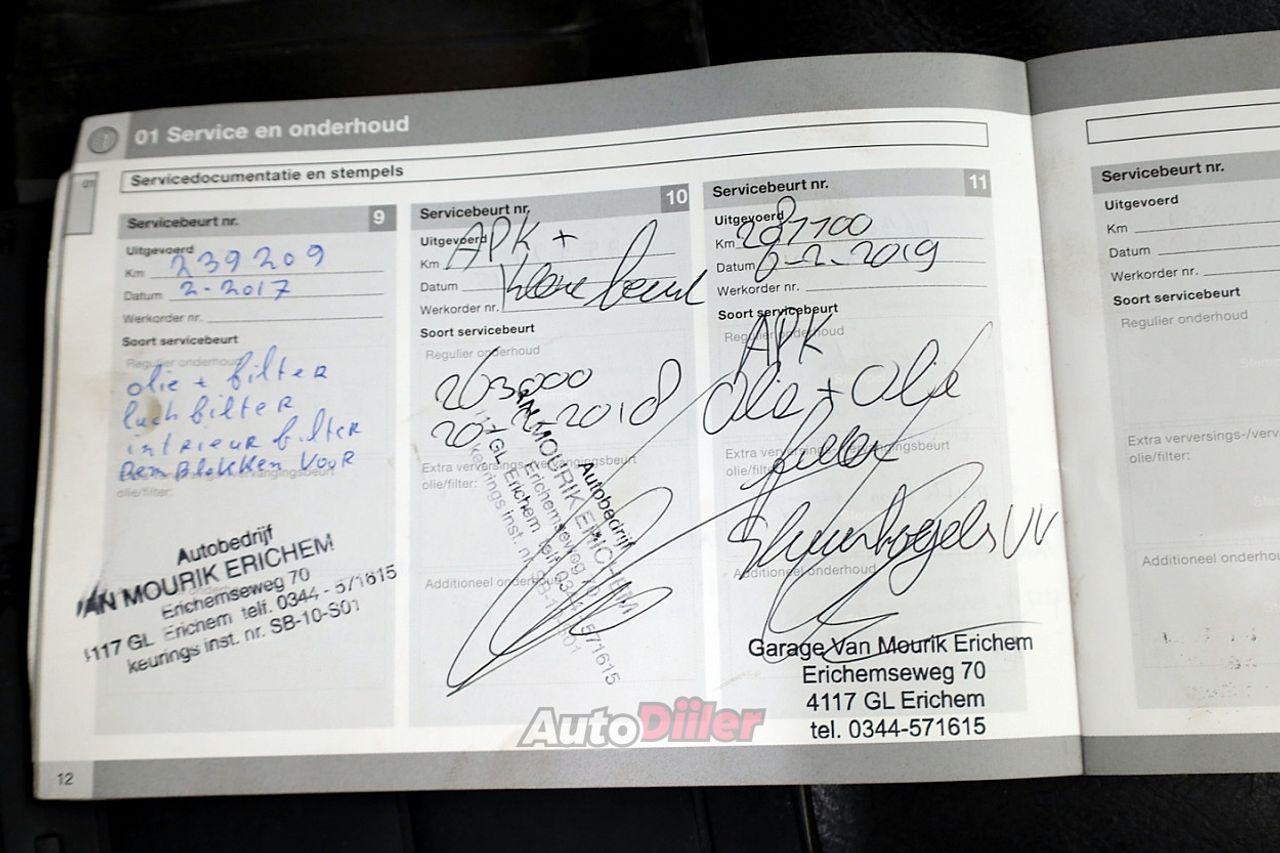 01 Service en onderhoud
01
Servicedocumentatie en stempels
Servicebeurt nr. 9
Uitgevoerd
Km 239209
Datum 2-2017
Werkorder nr.
Soort servicebeurt
Regulier onderhoud
olie + filter
luchfilter
intrieur filter
RemBlokken VooR
olie/filter:
Autobedrijf
VAN MOURIK ERICHEM
Erichemseweg 70
4117 GL Erichem telf. 0344 - 571615
keurings inst. nr. SB-10-S01
Servicebeurt nr. 10
Uitgevoerd APK +
Km
Datum kleine beurt
Werkorder nr.
Soort servicebeurt
Regulier onderhoud
263000
2018
Extra verversings-/vervangingsbeurt
olie/filter:
Autobedrijf
VAN MOURIK ERICHEM
Erichemseweg 70
4117 GL Erichem telf. 0344 - 571615
keurings inst. nr. SB-10-S01
Additioneel onderhoud
Servicebeurt nr. 11
Uitgevoerd
Km 287100
Datum 6-2-2019
Werkorder nr.
Soort servicebeurt
Regulier onderhoud
APK
Olie + Olie
filter
Extra verversings-/vervangingsbeurt
olie/filter:
Stuurkogels VV
Additioneel onderhoud
Garage Van Mourik Erichem
Erichemseweg 70
4117 GL Erichem
tel. 0344-571615
Servicebeurt nr.
Uitgevoerd
Km
Datum
Werkorder nr.
Soort servicebeurt
Regulier onderhoud
Extra verversings-/verv
olie/filter:
Additioneel onderhou
AutoDiiler
12